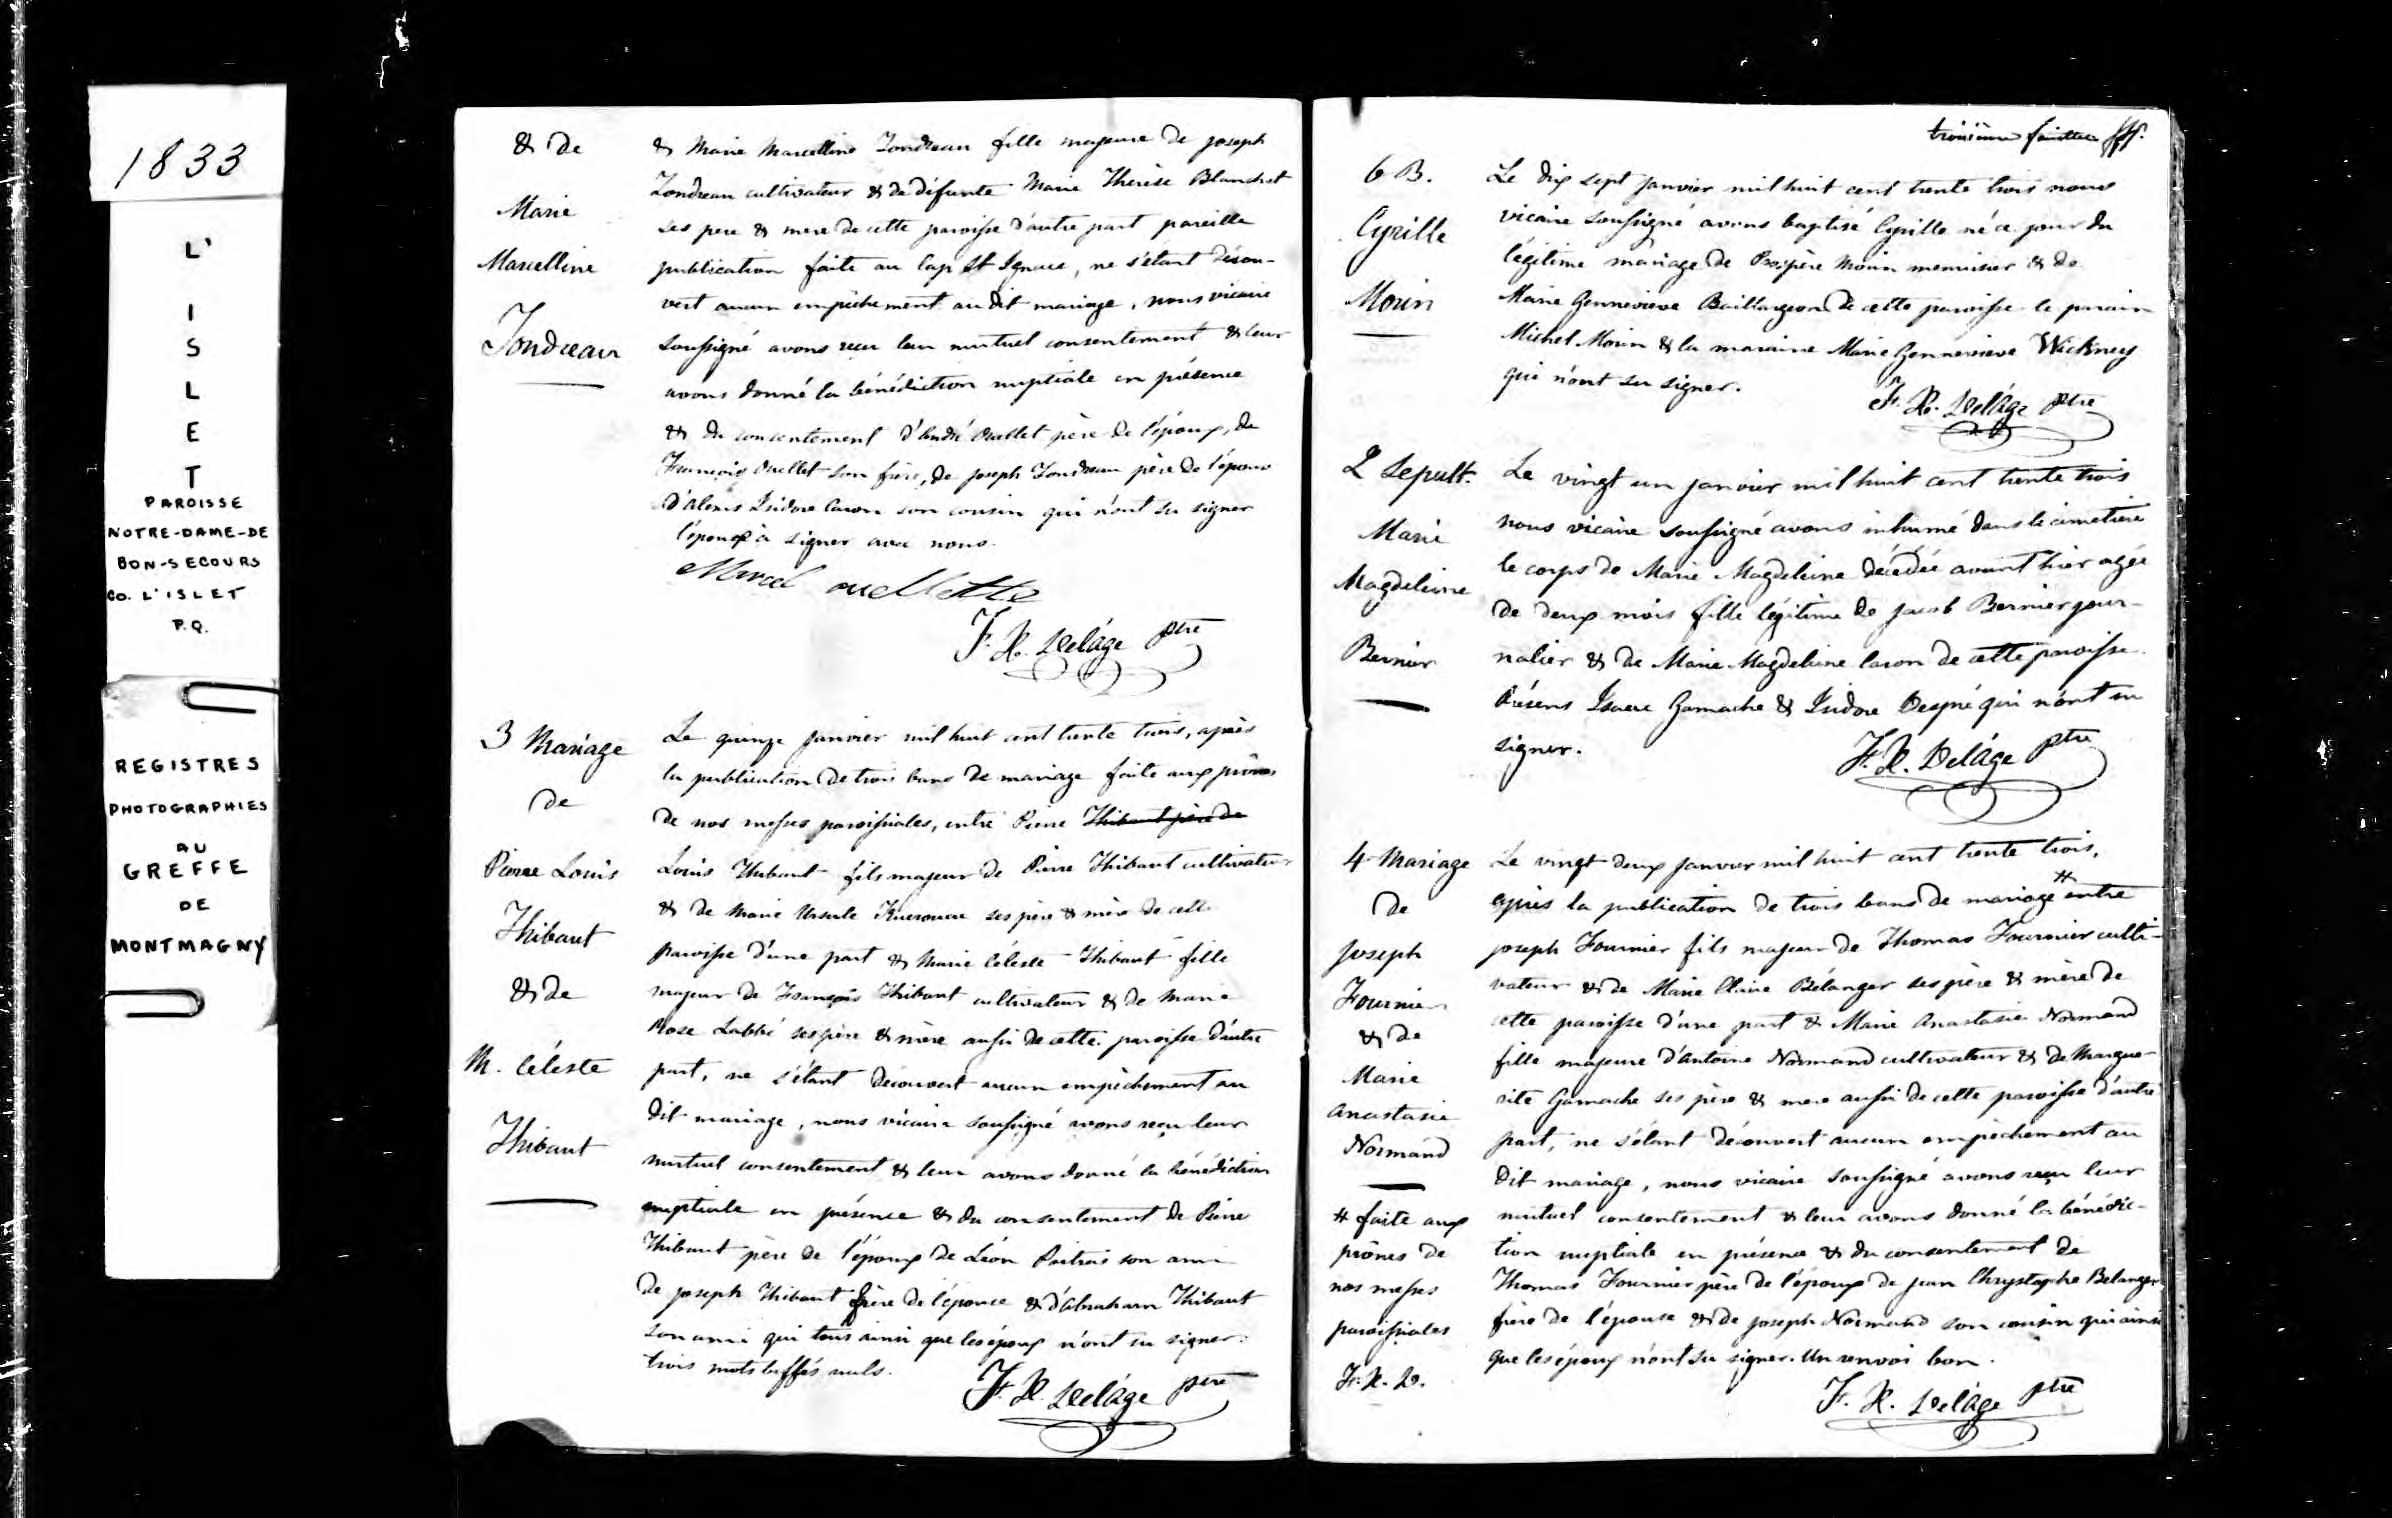 1833
L'
I
S
L
E
T
PAROISSE
NOTRE-DAME-DE
BON-SECOURS
CO. L'ISLET
P.Q.
REGISTRES
PHOTOGRAPHIES
AU
GREFFE
DE
MONTMAGNY
& de
Marie
Marcelline
Tondreau
& Marie Marcelline Tondreau fille majeure de joseph
Tondreau cultivateur & de défunte Marie Therèse Blanchet
ses pere & mere de cette paroisse d'autre part pareille
publication faite au Cap St Ignace, ne s'étant décou-
vert aucun empêchement au dit mariage, nous vicaire
soussigné avons reçu leur mutuel consentement & leur
avons donné la bénédiction nuptiale en présence
& du consentement d'André Ouellet père de l'époux, de
François Ouellet son frère, de joseph Tondreau père de l'épouse
d'Alexis Isidore Caron son cousin qui n'ont su signer
l'époux a signer avec nous.
Marcel ouellette
F. X. Delâge ptre
3 Mariage
de
Pierre Louis
Thibaut
& de
M. Céleste
Thibaut
Le quinze janvier mil huit cent trente trois, après
la publication de trois bans de mariage faite aux prônes
de nos messes paroissiales, entre Pierre Thibaut père de
Louis Thibaut fils majeur de Pierre Thibaut cultivateur
& de Marie Ursule ses père & mère de cette
paroisse d'une part & Marie Céleste Thibaut fille
majeur de François Thibaut cultivateur & de Marie
Rose Labbé ses père & mère aussi de cette paroisse d'autre
part, ne s'étant découvert aucun empêchement au
dit mariage, nous vicaire soussigné avons reçu leur
mutuel consentement & leur avons donné la bénédiction
nuptiale en présence & du consentement de Pierre
Thibaut père de l'époux de Léon Poitras son ami
de joseph Thibaut frère de l'épouse & d'Abraham Thibaut
son ami qui tous ainsi que les époux n'ont su signer.
trois mots biffés nuls.
F. X. Delâge ptre
troisième feuillet
6 B.
Cyrille
Morin
Le dix sept janvier mil huit cent trente trois nous
vicaire soussigné avons baptisé Cyrille né ce jour du
légitime mariage de Prospère Morin menuisier & de
Marie Gennevieve Baillargeon de cette paroisse le parain
Michel Morin & la maraine Marie Gennevieve Wickney
qui n'ont su signer.
F. X. Delâge ptre
2 Sepult.
Marie
Magdeleine
Bernier
Le vingt un janvier mil huit cent trente trois
nous vicaire soussigné avons inhumé dans le cimetière
le corps de Marie Magdeleine décédée avant hier agée
de deux mois fille légitime de jacob Bernier jour-
nalier & de Marie Magdeleine Caron de cette paroisse.
Présens Gamache & Isidore Després qui n'ont su
signer.
F. X. Delâge ptre
4 Mariage
de
Joseph
Fournier
& de
Marie
Anastasie
Normand
# faite aux
prônes de
nos messes
paroissiales
F. X. D.
Le vingt deux janvier mil huit cent trente trois,
après la publication de trois bans de mariage # entre
joseph Fournier fils majeur de Thomas Fournier culti-
vateur & de Marie Claire Bélanger ses père & mère de
cette paroisse d'une part & Marie Anastasie Normand
fille majeure d'Antoine Normand cultivateur & de Margue-
rite Gamache ses père & mere aussi de cette paroisse d'autre
part, ne s'étant découvert aucun empêchement au
dit mariage, nous vicaire soussigné avons reçu leur
mutuel consentement & leur avons donné la bénédic-
tion nuptiale en présence & du consentement de
Thomas Fournier père de l'époux de jean Chrystophe Belanger
frère de l'épouse & de joseph Normand son cousin qui ainsi
que les époux n'ont su signer. Un renvoi bon.
F. X. Delâge ptre